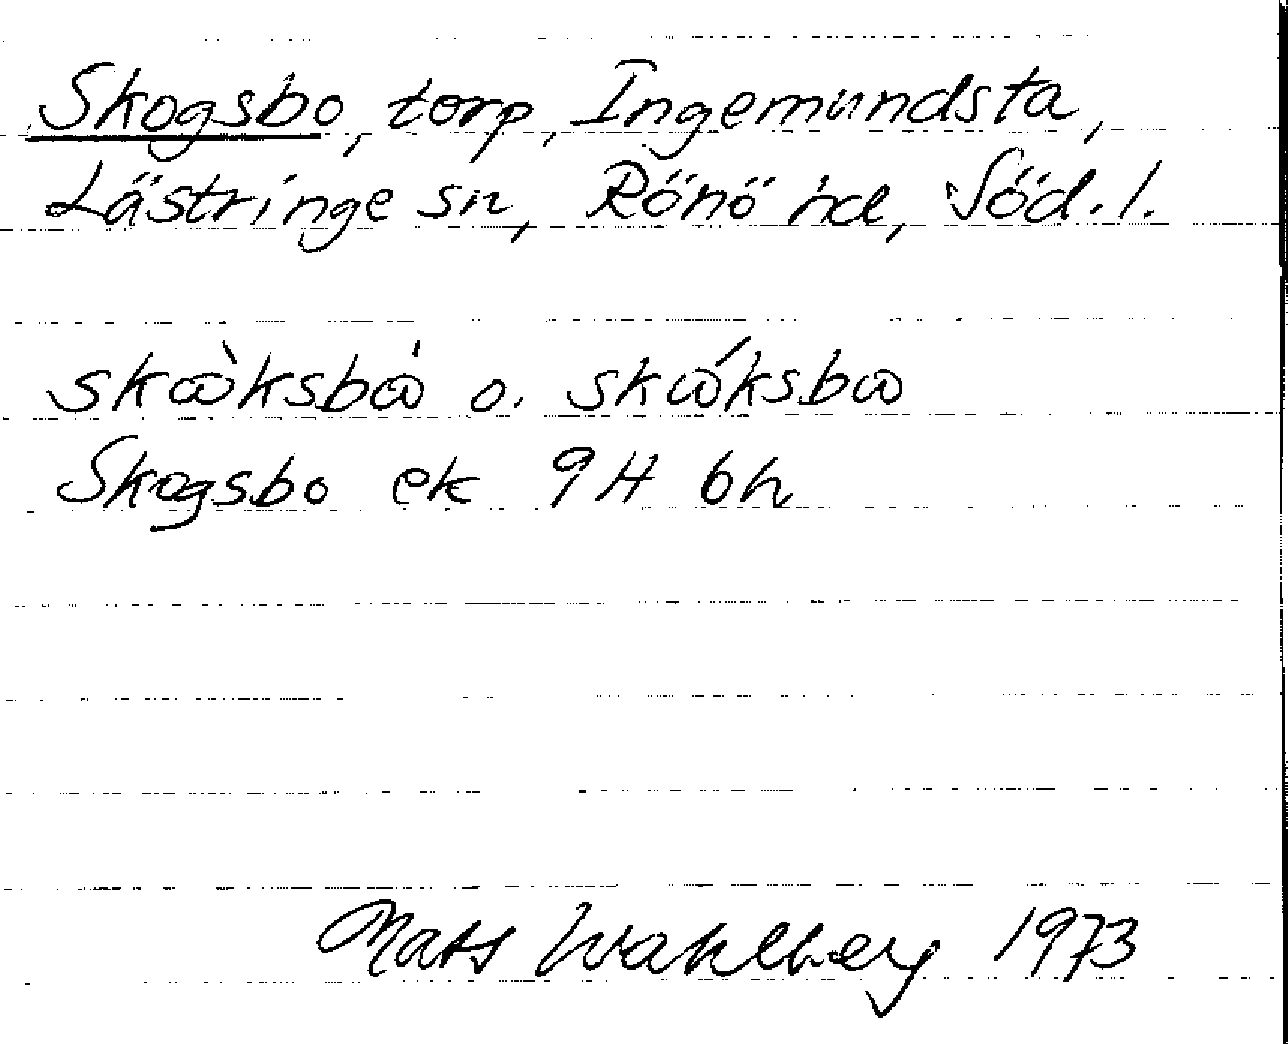 Skogsbo, torp, Ingemundsta,
Lästringe sn, Rönö hd, Söd.l.
skꞷ̀ksbꞷ̇ o. skꞷ́ksbꞷ
Skogsbo ek 9H 6h
Mats Wahlberg 1973